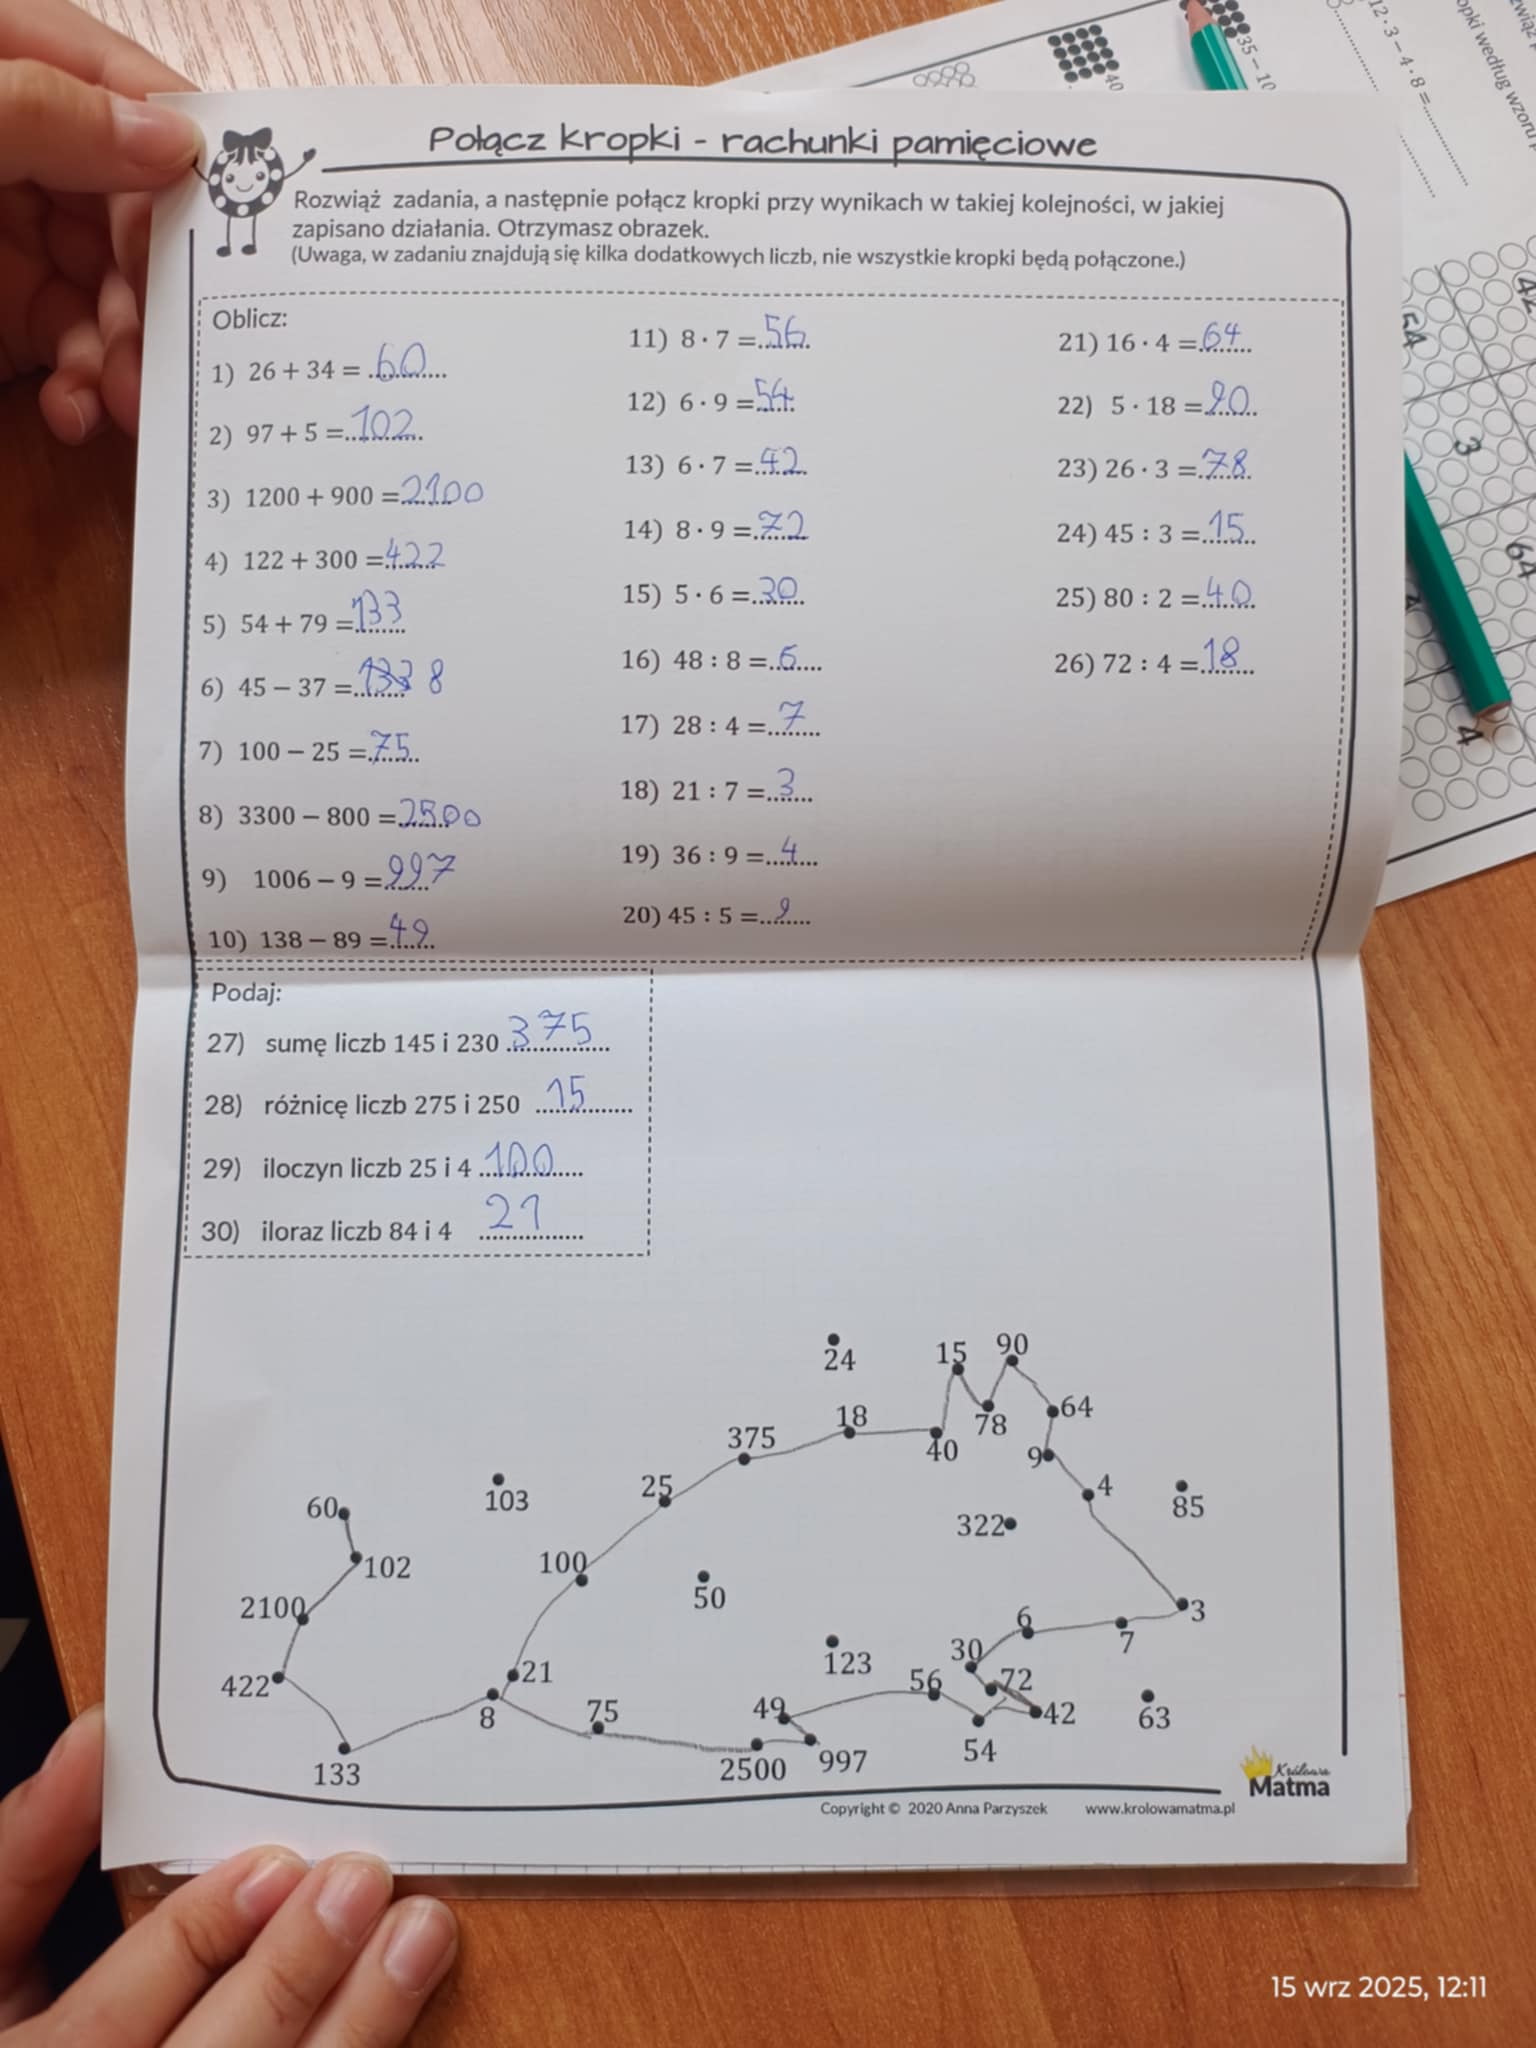 Połącz kropki - rachunki pamięciowe
Rozwiąż zadania, a następnie połącz kropki przy wynikach w takiej kolejności, w jakiej
zapisano działania. Otrzymasz obrazek.
(Uwaga, w zadaniu znajdują się kilka dodatkowych liczb, nie wszystkie kropki będą połączone.)
Oblicz:
1) 26 + 34 = 60
2) 97 + 5 = 102
3) 1200 + 900 = 2100
4) 122 + 300 = 422
5) 54 + 79 = 133
6) 45 – 37 = 133 8
7) 100 – 25 = 75
8) 3300 – 800 = 2500
9) 1006 – 9 = 997
10) 138 – 89 = 49
11) 8 · 7 = 56
12) 6 · 9 = 54
13) 6 · 7 = 42
14) 8 · 9 = 72
15) 5 · 6 = 30
16) 48 : 8 = 6
17) 28 : 4 = 7
18) 21 : 7 = 3
19) 36 : 9 = 4
20) 45 : 5 = 9
21) 16 · 4 = 64
22) 5 · 18 = 90
23) 26 · 3 = 78
24) 45 : 3 = 15
25) 80 : 2 = 40
26) 72 : 4 = 18
Podaj:
27) sumę liczb 145 i 230 375
28) różnicę liczb 275 i 250 15
29) iloczyn liczb 25 i 4 100
30) iloraz liczb 84 i 4 21
24
15
90
64
78
18
40
375
9
4
25
85
103
60
322
102
100
50
2100
3
6
7
30
123
21
72
56
422
49
42
63
8
75
54
997
2500
133
Królowa
Matma
Copyright © 2020 Anna Parzyszek www.krolowamatma.pl
40
35 – 10
12 · 3 – 4 · 8 =
opki według wzoru
54
42
3
64
4
15 wrz 2025, 12:11